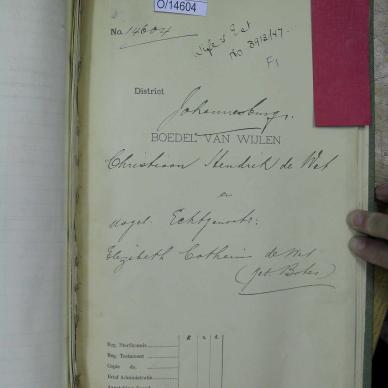 O/14604
No. 14604
Wife's Est
No 3912/47
F1
District
Johannesburg.
BOEDEL VAN WIJLEN
Christiaan Hendrik de Wet
en
nagel. Echtgenoote:
Elizabeth Catharina de Wet
(geb. Botes)
R s. d.
Reg. Sterfkennis
Reg. Testament
Copie do.
Brief Administratie